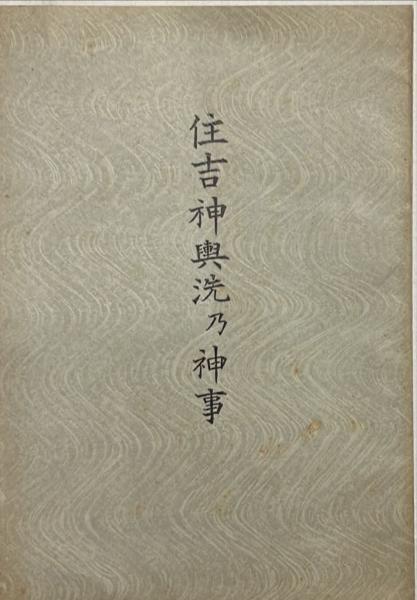 住吉神輿洗乃神事